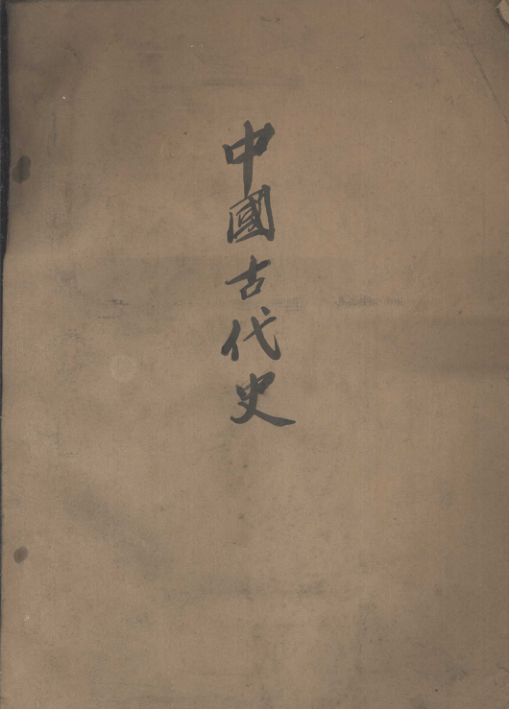 中國古代史